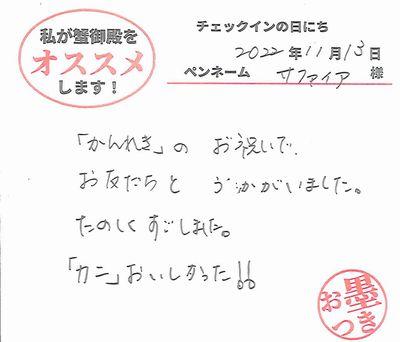 私が蟹御殿を
オススメ
します！
チェックインの日にち
2022年11月13日
ペンネーム サファイア 様
「かんれき」の お祝いで、
お友だちと うかがいました。
たのしくすごしました。
「カニ」おいしかった!!
お墨
つき